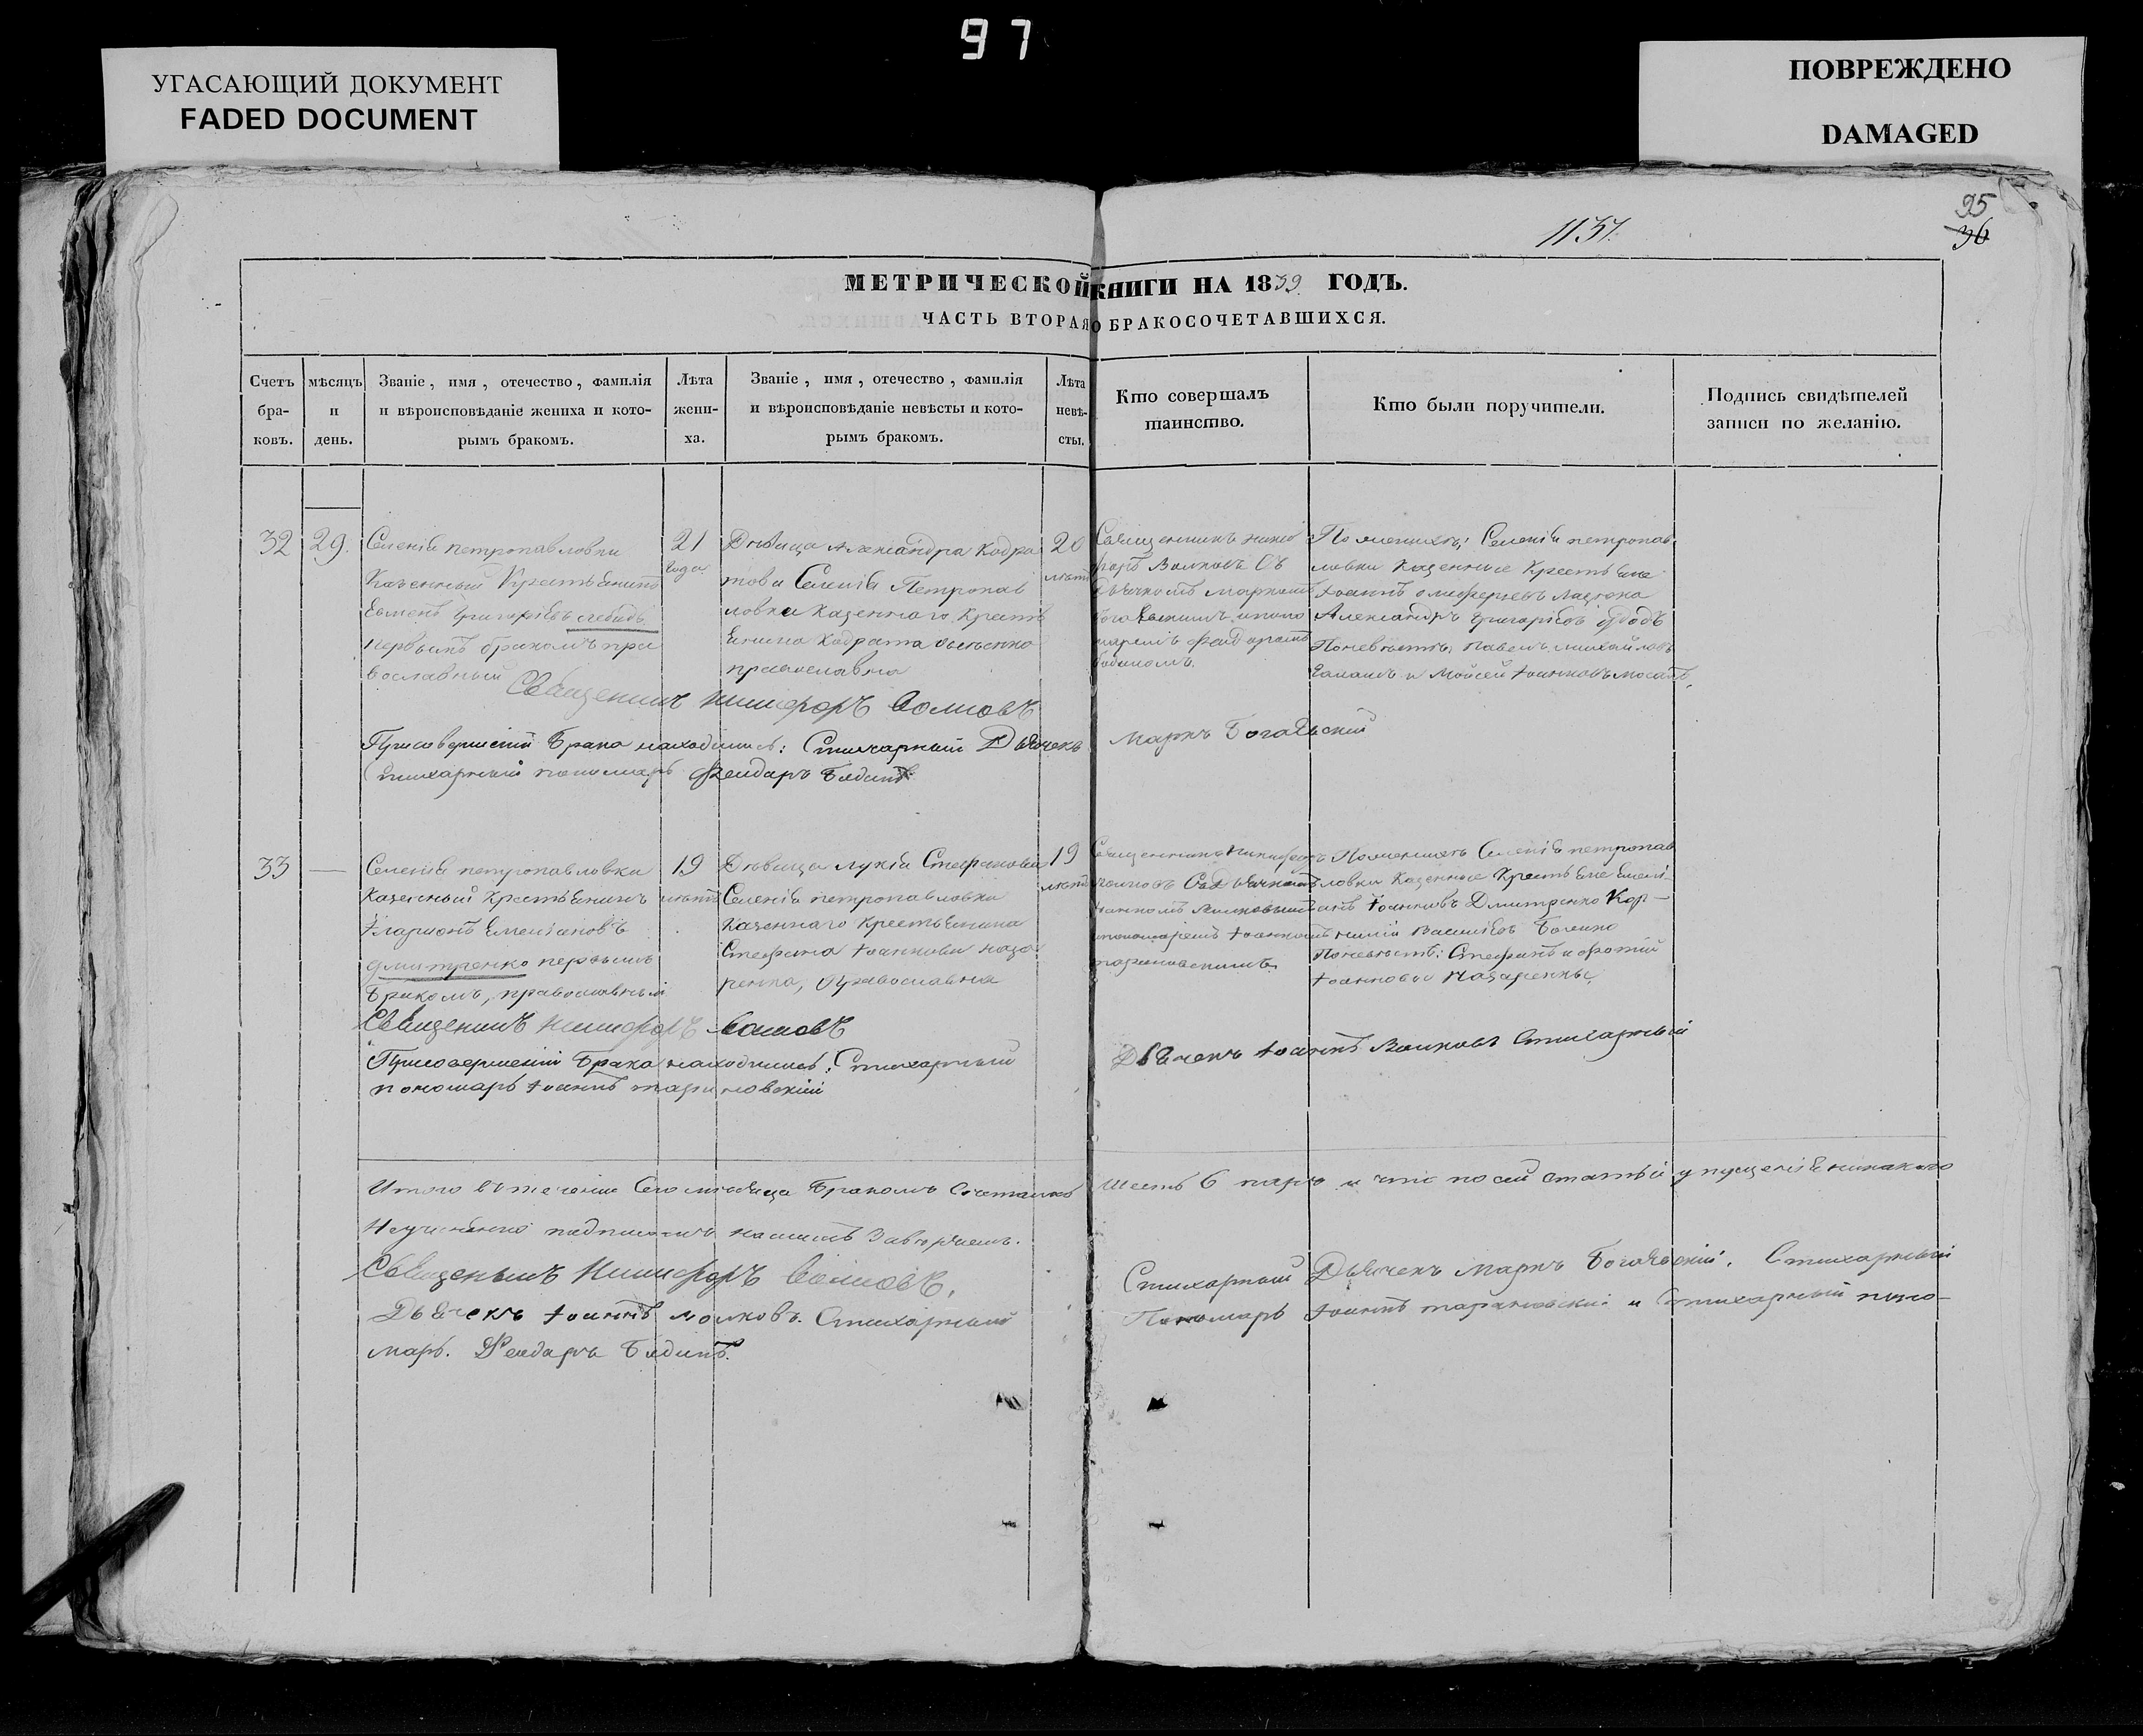 97
УГАСАЮЩИЙ ДОКУМЕНТ
FADED DOCUMENT
ПОВРЕЖДЕНО
DAMAGED
95
36
1137.
МЕТРИЧЕСКОЙ КНИГИ НА 1839 ГОДЪ.
ЧАСТЬ ВТОРАЯ О БРАКОСОЧЕТАВШИХСЯ.
Счетъ
бра-
ковъ.
мѣсяцъ
и
день.
Званіе, имя, отечество, фамилія
и вѣроисповѣданіе жениха и кото-
рымъ бракомъ.
Лѣта
жени-
ха.
Званіе, имя, отечество, фамилія
и вѣроисповѣданіе невѣсты и кото-
рымъ бракомъ.
Лѣта
невѣ-
сты.
Кто совершалъ
таинство.
Кто были поручители.
Подпись свидѣтелей
записи по желанію.
32
29.
Селенія петропавловки
Казенный Крестьянинъ
Григоріевъ лебидь
первымъ бракомъ пра
вославный
21
года
Дѣвица Александра Кодра
това Селенія Петропав
ловки казенного Крестья
Кодрата
православна
20
лѣтъ
Священникъ ники
форъ Волковъ Съ
дьячкомъ маркомъ
По женихѣ: Селенія петропав
ловки Казенные Крестьяне
Іоаннъ
Александръ Григоріевъ Удодъ
По невѣстѣ: павелъ михайловъ
и Моисей Іоанновъ
Священникъ никифоръ волковъ
При совершеніи Брака находились: Стихарный Дьячекъ Маркъ
стихарный пономарь Феидаръ
33
—
Селенія петропавловки
Казенный Крестьянинъ
Иларионъ Емеліановъ
дмитренко первымъ
бракомъ, православный
19
лѣтъ
Дѣвица лукія Стефанова
Селенія петропавловки
Казенного Крестьянина
Стефана Іоаннова наза
ренка, Православна
19
лѣтъ
Священникъ Никифоръ
волковъ Съ Дьячкомъ
Іоанномъ Волковымъ
и пономаремъ Іоанномъ
По женихѣ Селенія петропав
ловки Казенные Крестьяне Емелі
анъ Іоанновъ Дмитренко Кор-
нилій Василіевъ
По невѣстѣ: Стефанъ и фотій
Іоанновы Назаренки,
Священникъ никифоръ волковъ
При совершеніи Брака находились: Стихарный Дьячекъ Іоаннъ Волковъ Стихарный
пономарь Іоаннъ
Итого въ теченіи Сего мѣсяца Бракомъ Сочетались Шесть 6 паръ и что по сей статьи упущенія никакого
Неучинено подписомъ нашимъ Завѣряемъ.
Священникъ Никифоръ Волковъ,
Стихарный Дьячекъ Маркъ
Стихарный
Дьячекъ Іоаннъ Волковъ. Стихарный
Пономарь Іоаннъ
и Стихарный поно-
марь.